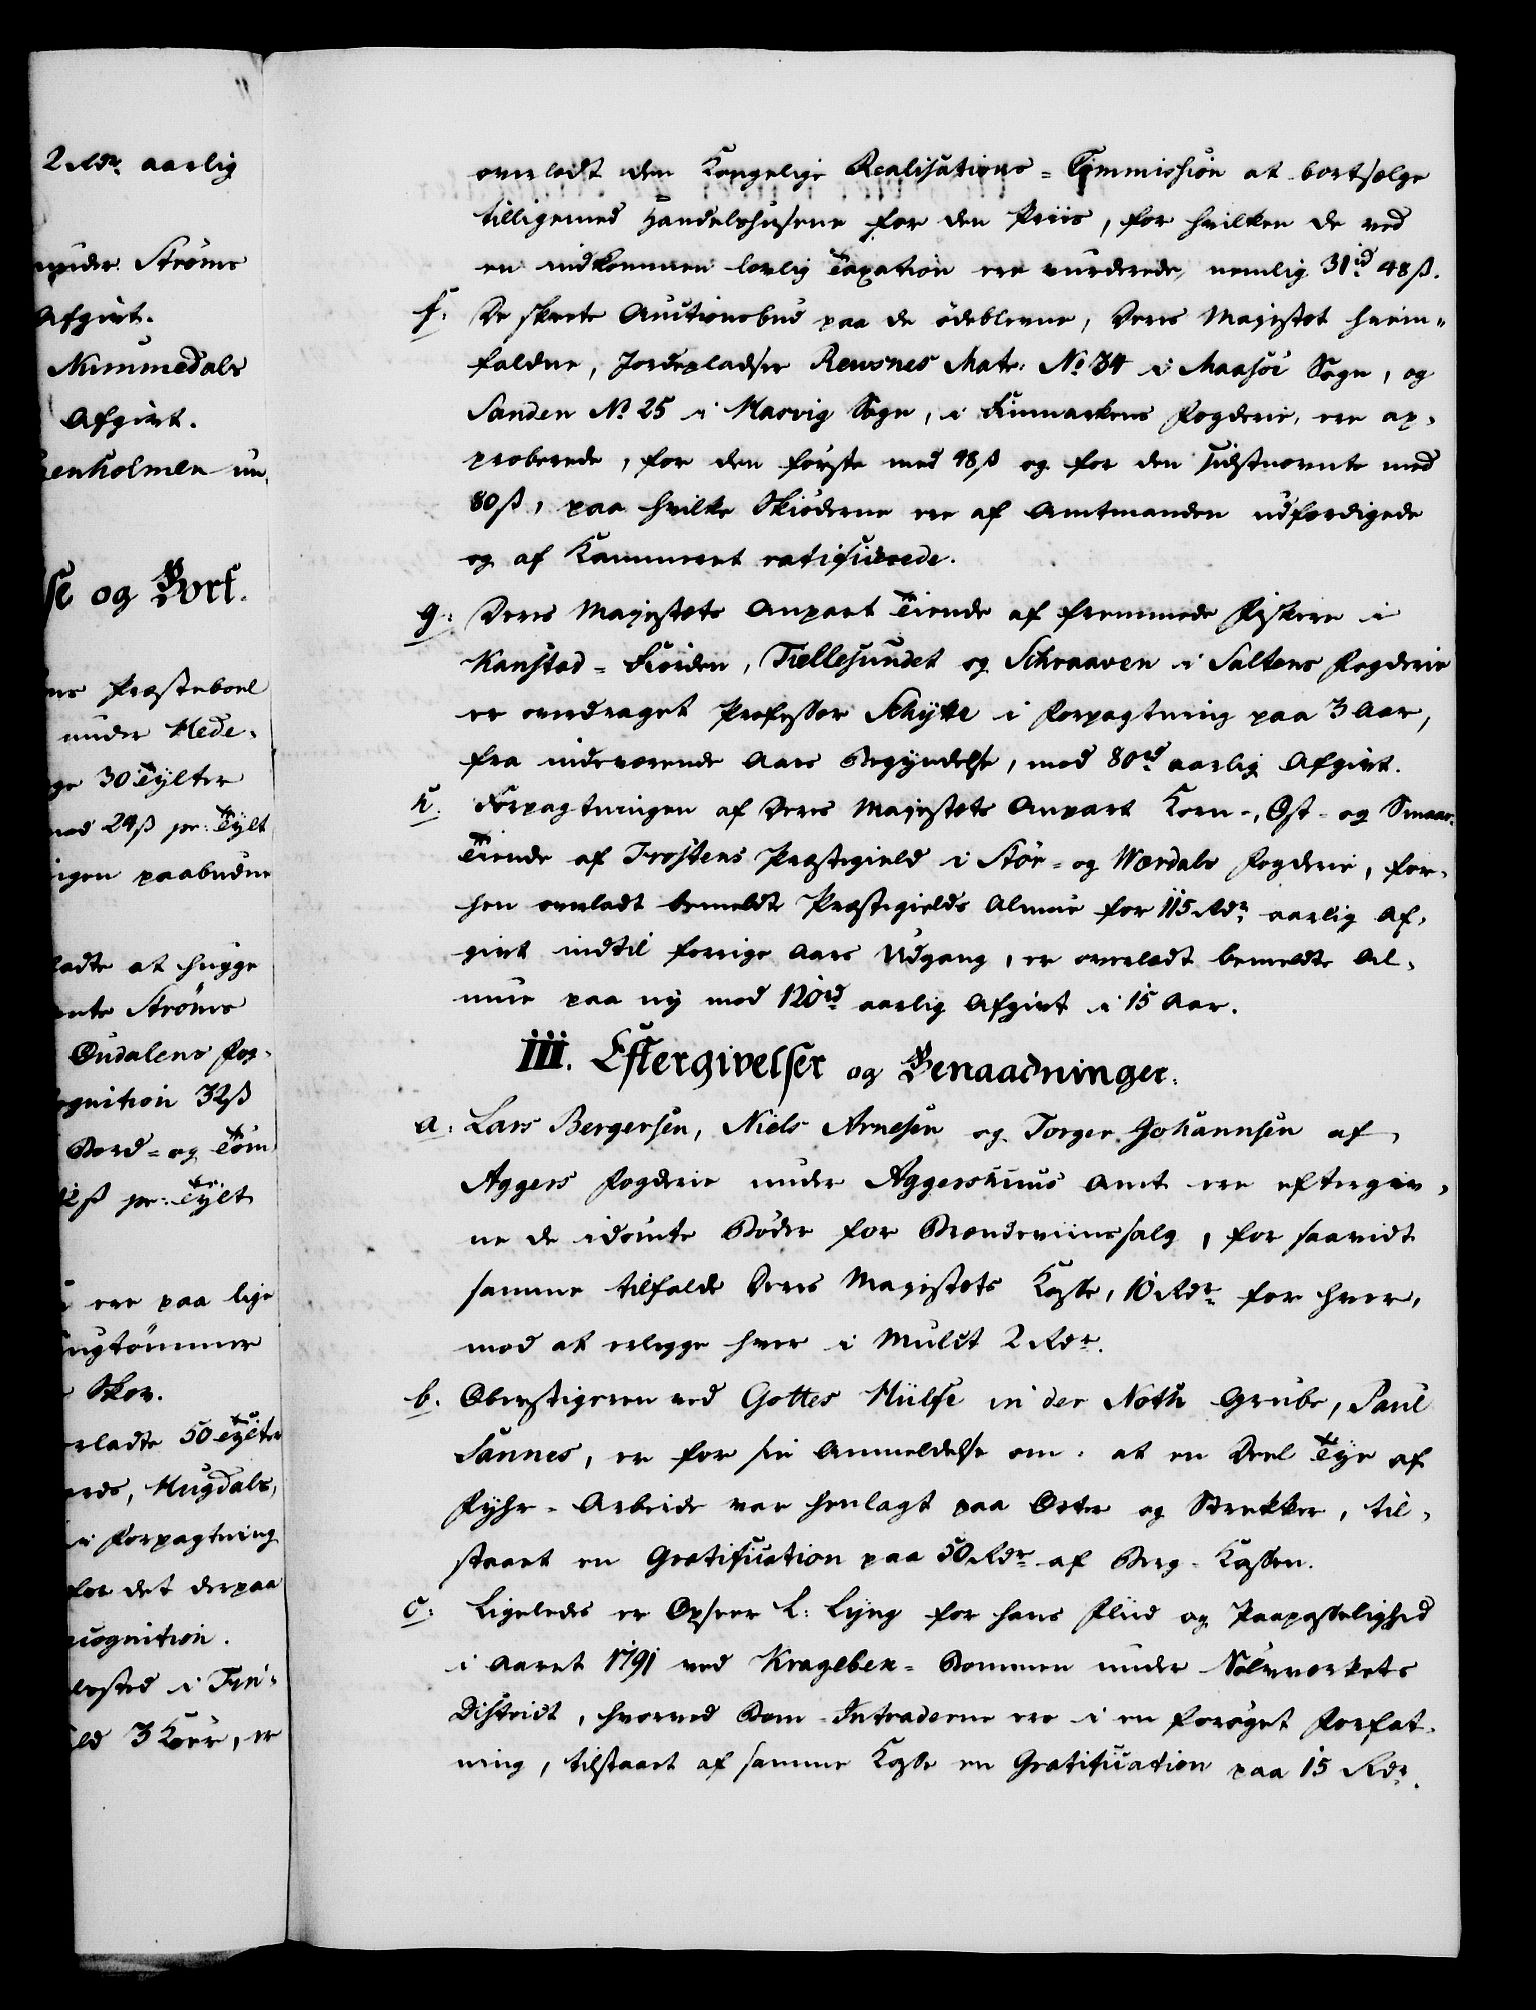 2 Rdr. aarlig
under Ströms
Afgivt.
Nummedals
Afgivt.
enholmen un
se og Bort.
ns Præsteboel
under Hede-
ge 30 Tylter
mod 24 ß pr: Tylt
igen paabudne
ladte at hugge
ente Ströms
Oudalens Fog-
ognition 32 ß
Bord- og Töm
12 ß pr: Tylt
ere paa lige
ugtömmer
Skov.
erladte 50 Tylter
erds, Hugdals,
i Forpagtning
for det derpaa
ecognition.
bosted i Fin-
ld 3 Köer, er
overladt den Kongelige Realisations-Commission at bortsælge
tilligemed Handelshusene for den Priis, for hvilken de ved
en indkommen lovlig Taxation ere vurderede, nemlig 31 rd 48 ß.
f: De skeete Auctionsbud paa de ödeblevne, Deres Majestet hiem-
faldne, Jordepladser Reusnes Matr: No 34 i Maasöe Sogn, og
Sanden No 25 i Masvig Sogn, i Finmarkens Fogderie, ere ap-
proberede, for den förste med 48 ß og for den sidstnævnte med
80 ß, paa hvilke Skiöderne ere af Amtmanden udfærdigede
og af Kammeret ratificerede.
g: Deres Majestets Anpart Tiende af fremmede Fiskere i
Kanstad-Fiorden, Tiellesundet og Schraaven i Saltens Fogderie
er overdraget Professor Schytte i Forpagtning paa 3 Aar,
fra indeværende Aars Begyndelse, mod 80 rd aarlig Afgivt.
h. Forpagtningen af Deres Majestets Anpart Korn-, Ost- og Smaae-
Tiende af Frostens Præstegield i Stör- og Værdals Fogderie, for-
hen overladt bemeldte Præstegields Almue for 115 Rdr aarlig Af-
givt indtil forrige Aars Udgang, er overladt bemeldte Al-
mue paa ny mod 120 rd aarlig Afgivt i 15 Aar.
III. Eftergivelser og Benaadninger.
a: Lars Bergersen, Niels Arnesen og Torger Johannsen af
Aggers Fogderie under Aggershuus Amt ere eftergiv-
ne de idömte Böder for Brændeviinssalg, for saavidt
samme tilfalde Deres Majestets Kasse, 10 Rdr for hver,
mod at erlegge hver i Mulct 2 Rdr.
b. Oberstigeren ved Gottes Hülfe in der Noth Grube, Paul
Sannes, er for sin Anmeldelse om, at en Deel Tye af
Fyhr-Arbeide var henlagt paa Orter og Strekker, til-
staaet en Gratification paa 50 Rdr af Berg-Kassen.
c: Ligeledes er Opseer L: Lyng for hans Fliid og Paapasselighed
i Aaret 1791 ved Krageben-Bommen under Sölvværkets
District, hvorved Bom-Intraderne ere i en foröget Forfat-
ning, tilstaaet af samme Kasse en Gratification paa 15 Rdr.